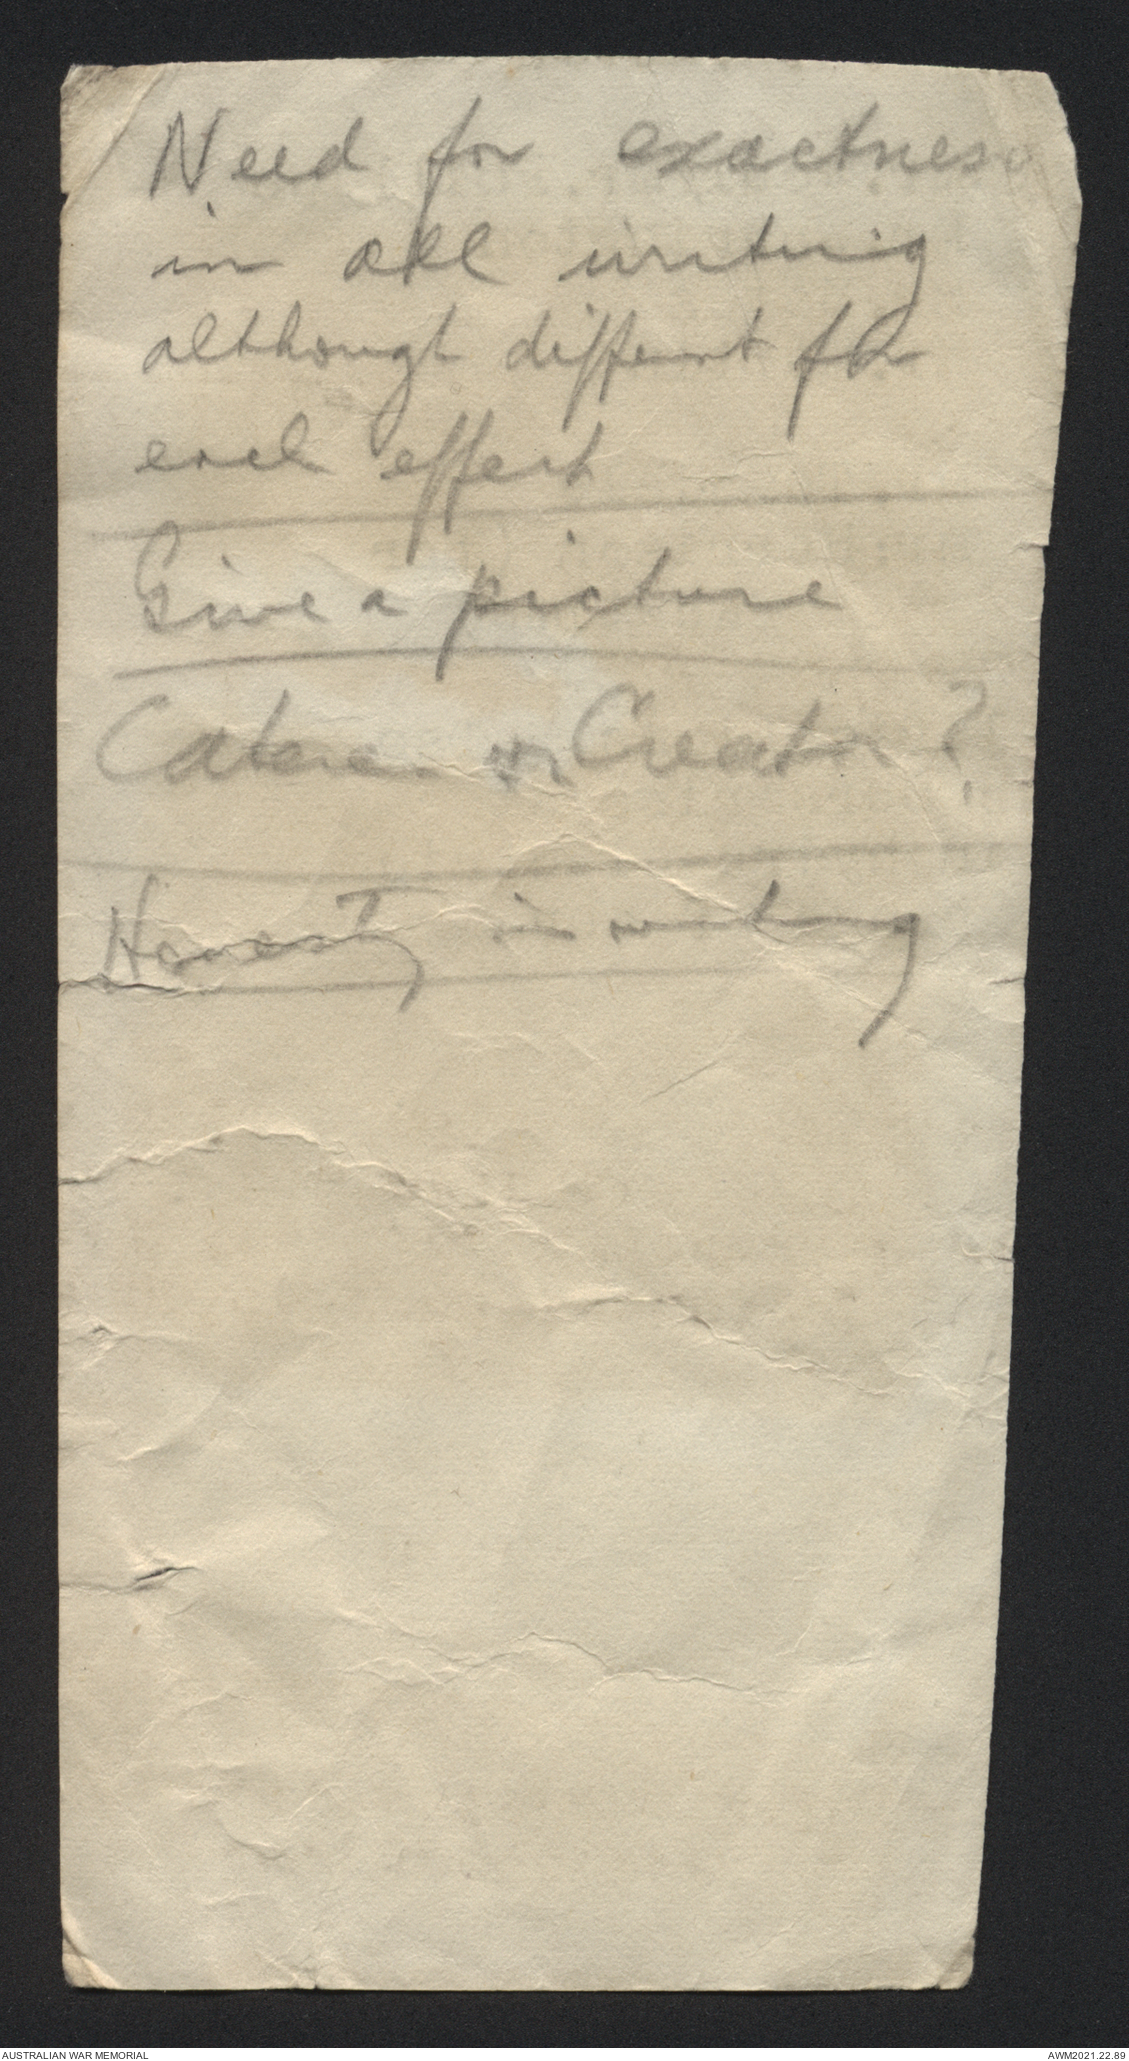 Need for exactness
in all writing
although different for
each effect
Give a picture
Caterer or Creator?
Honesty in writing
AUSTRALIAN WAR MEMORIAL
AWM2021.22.89